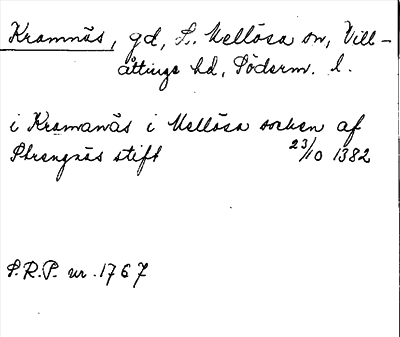 Kramnäs, gd, S. Mellösa sn, Vill-
åttinge hd, Söderm. l.
i Kramanäs i Mellösa socken af
Strengnäs stift 23/10 1382
S.R.P. nr. 1767